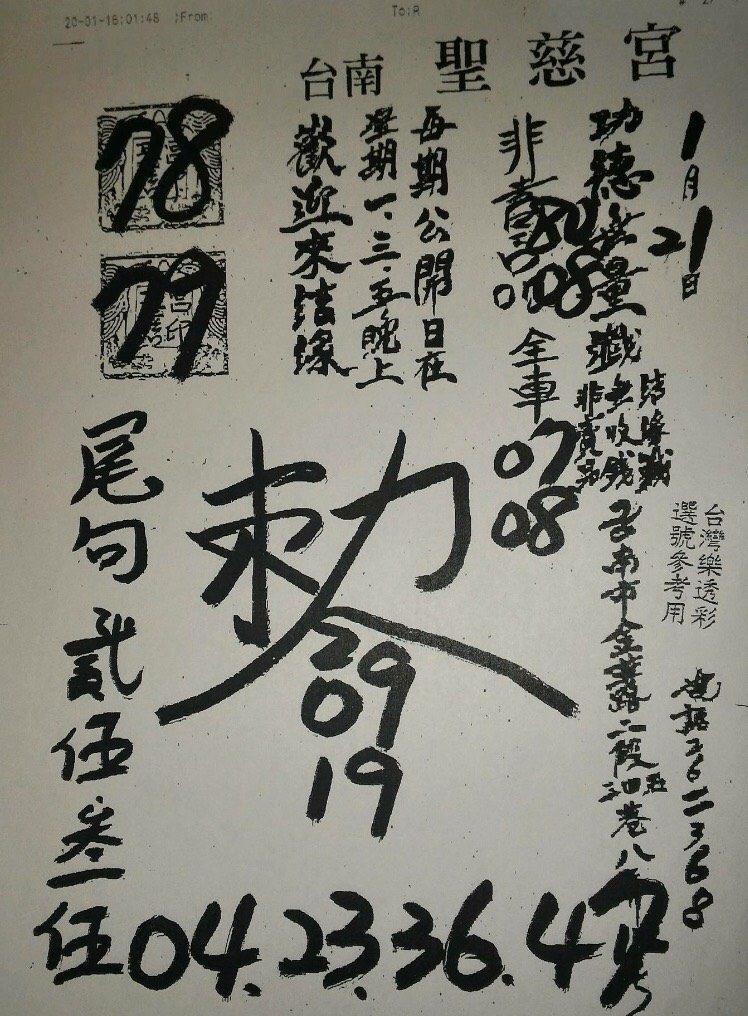 20-01-18;01:48 ;From: To:R ;
台南 聖慈宮
1月21日
功德無量
結緣
無收錢
非賣品
非賣品
80
008
全車
07
08
每期公開日在
星期一、三、五晚上
歡迎來結緣
78
79
台灣樂透彩
選號參考用
台南市金華路二段
巷八
電話2622368
敕令
29
09
19
尾句 貳伍叁伍
04.23.36.47